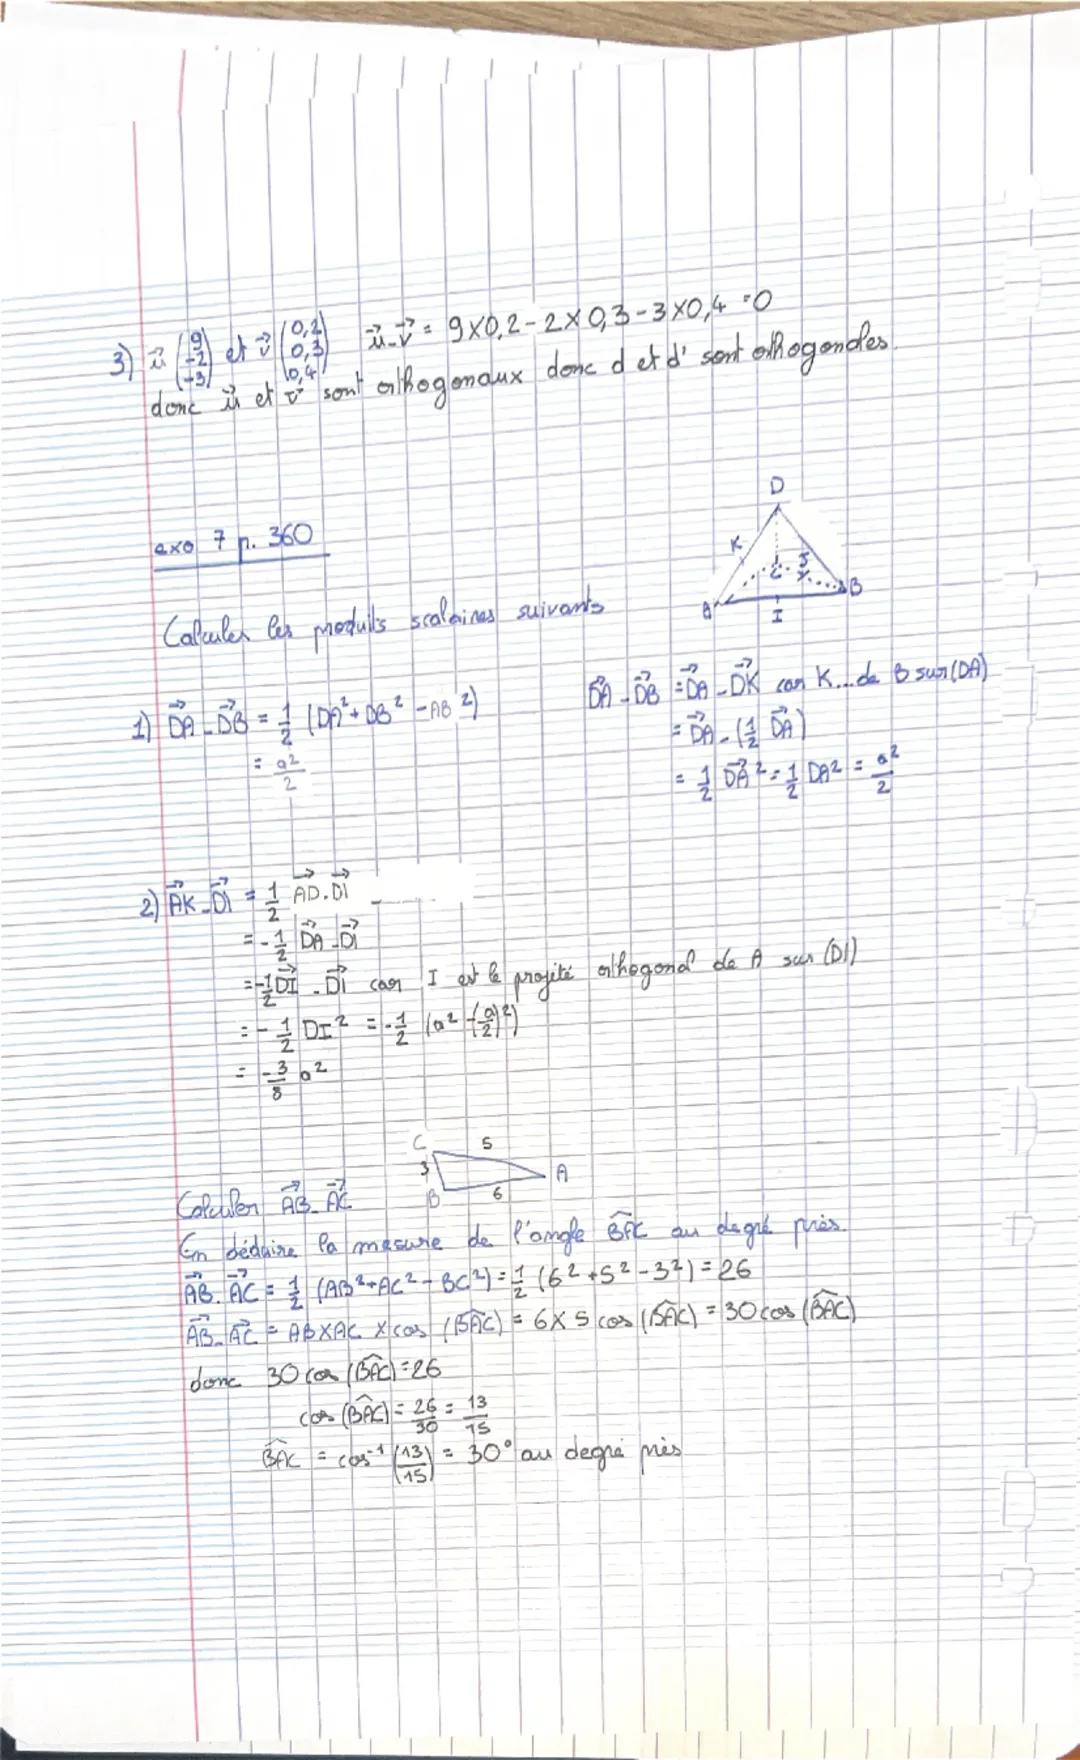 3) u⃗ (9 -2 -3) et v⃗ (0,2 0,3 0,4) u⃗.v⃗ = 9×0,2-2×0,3-3×0,4 =0
donc u⃗ et v⃗ sont orthogonaux donc d et d' sont orthogonales.
D
K
C
J
B
A
I
exo 7 p. 360
Calculer les produits scalaires suivants
1) DA⃗.DB⃗ = 1/2 (DA²+DB²-AB²)
= a²/2
DA⃗.DB⃗ = DA⃗.DK⃗ car K...de B sur (DA)
= DA⃗.(1/2 DA⃗)
= 1/2 DA⃗² = 1/2 DA² = a²/2
2) AK⃗.DI⃗ = 1/2 AD⃗.DI⃗
= -1/2 DA⃗.DI⃗
= -1/2 DI⃗.DI⃗ car I est le projité orthogonal de A sur (DI)
= -1/2 DI² = -1/2 (a²-(a/2)²)
= -3/8 a²
C 5
3 A
B 6
Calculer AB⃗.AC⃗
En déduire la mesure de l'angle BAC au degré près.
AB⃗.AC⃗ = 1/2 (AB²+AC²-BC²) = 1/2 (6²+5²-3²) = 26
AB⃗.AC⃗ = AB×AC×cos (BAC) = 6×5 cos (BAC) = 30 cos (BAC)
donc 30 cos (BAC) = 26
cos (BAC) = 26/30 = 13/15
BAC = cos⁻¹ (13/15) = 30° au degré près